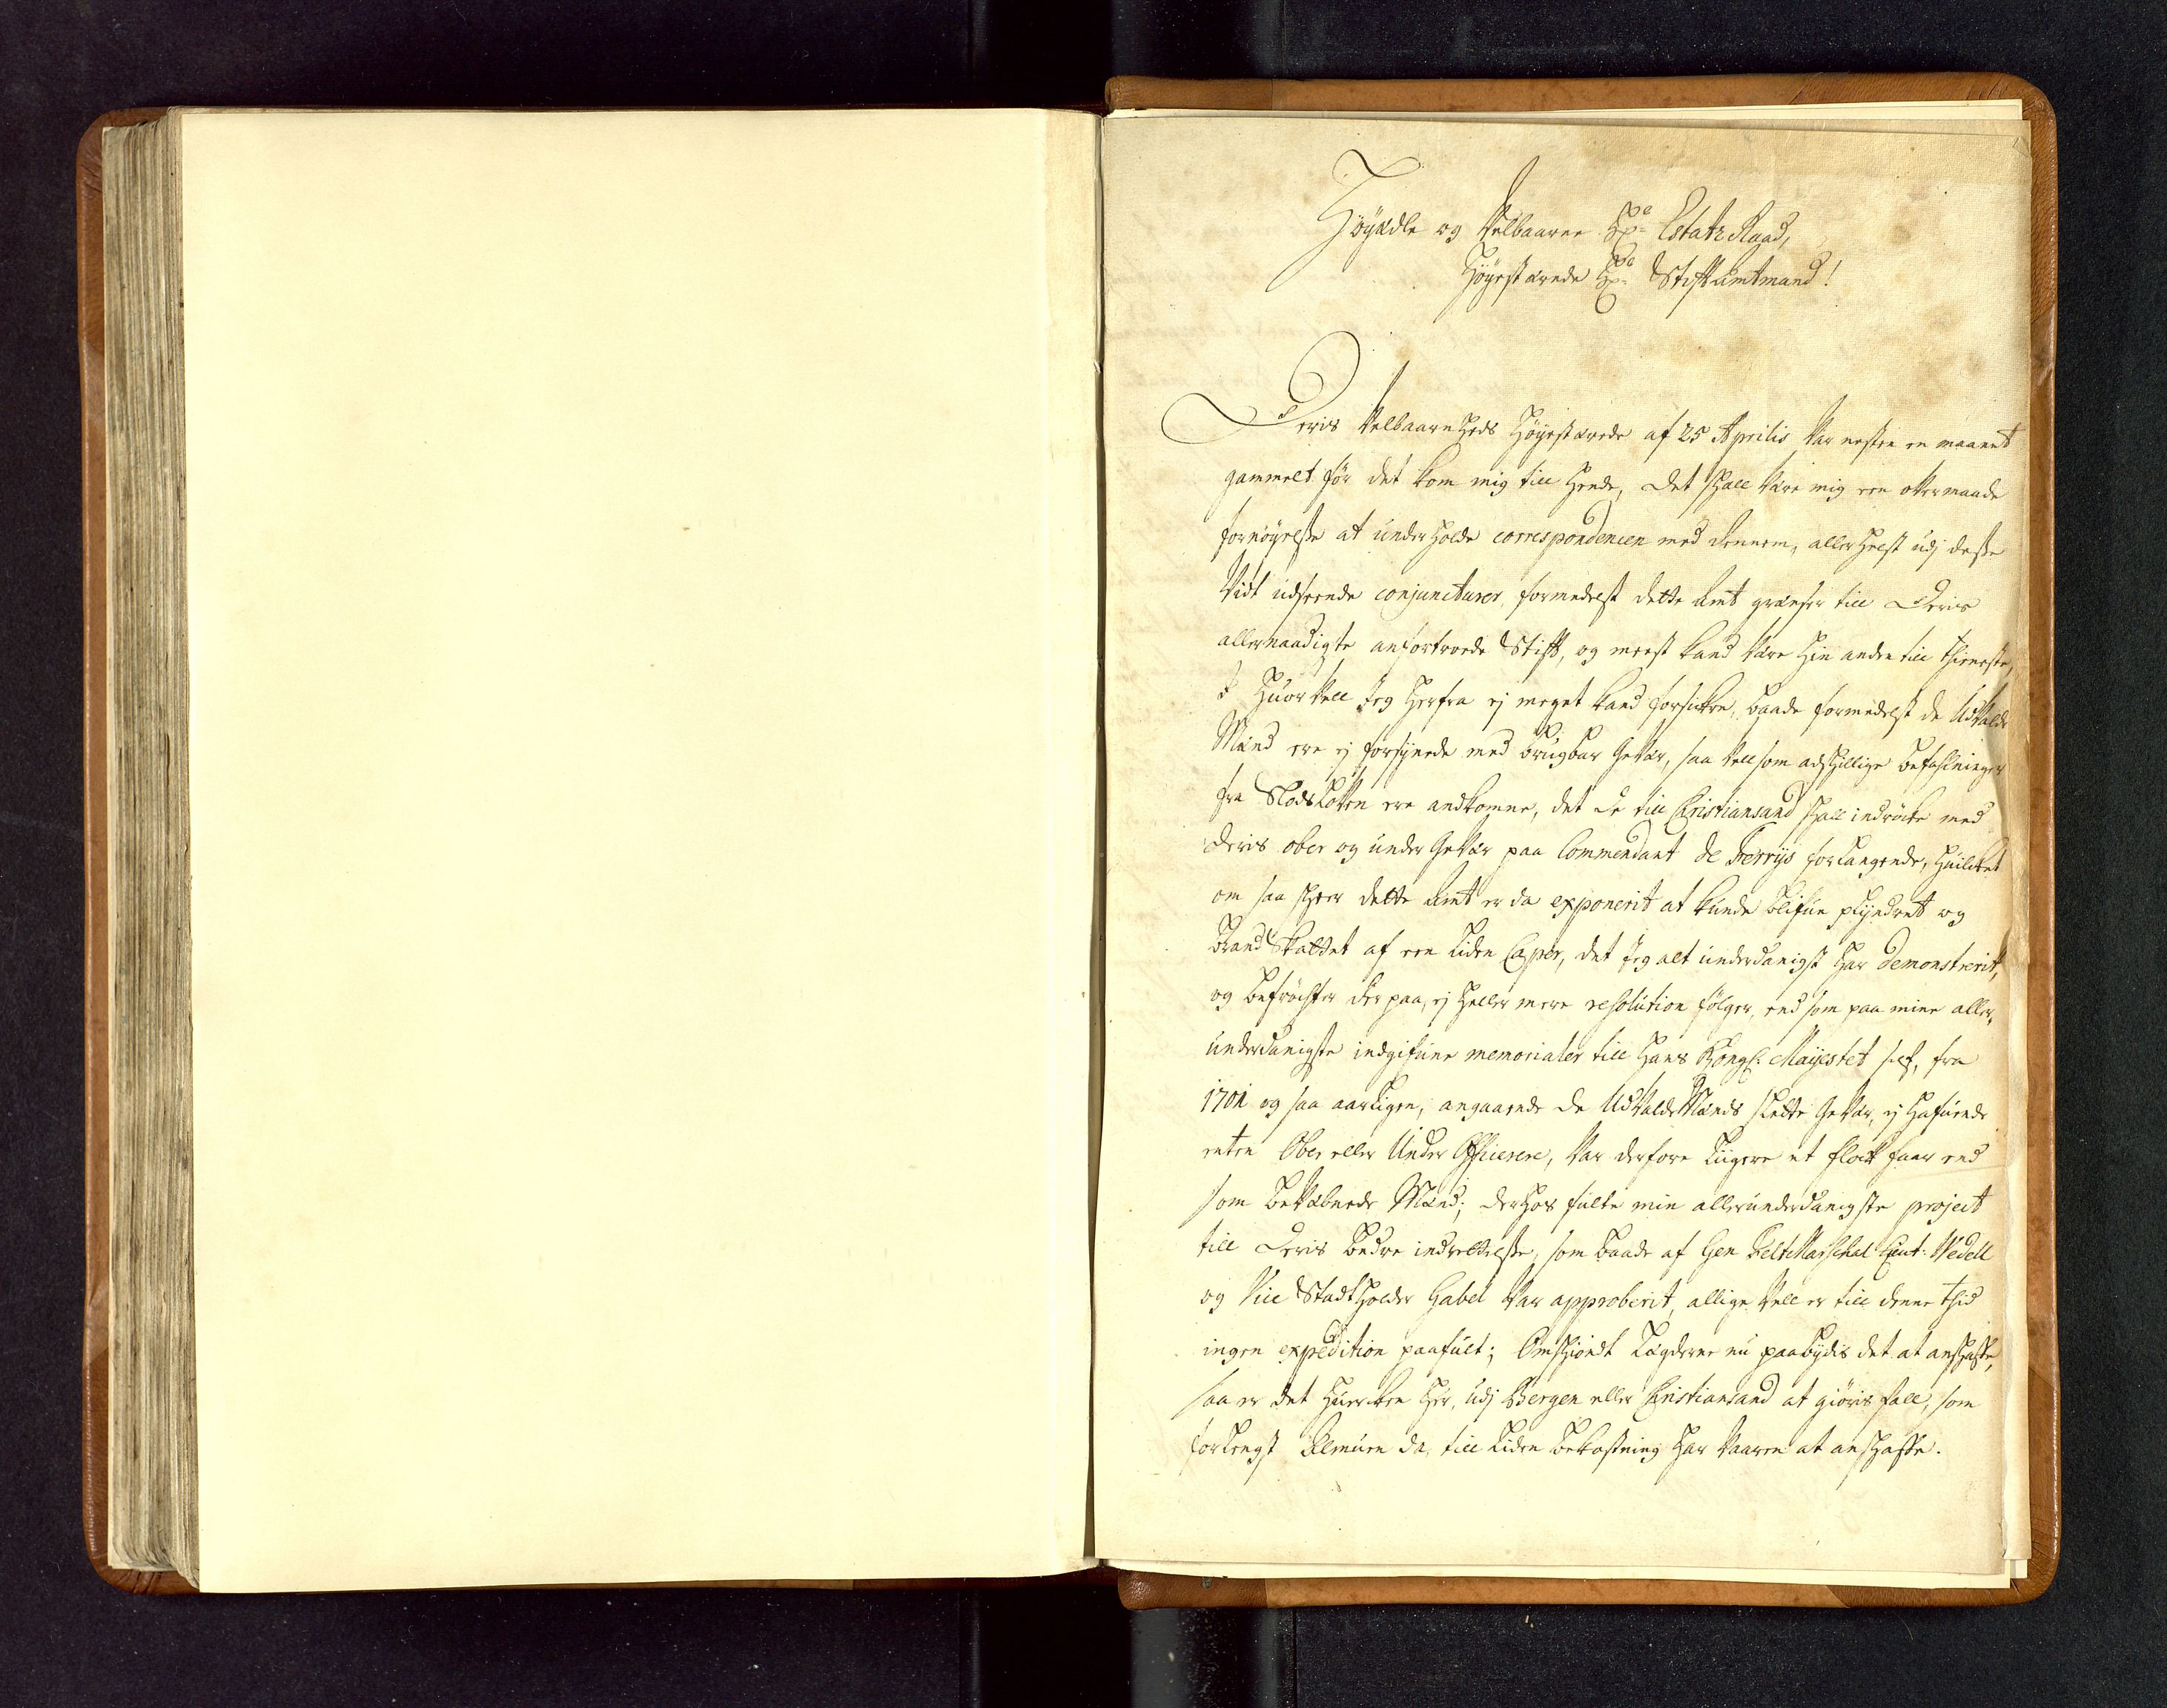 Høyædle og Velbaarne Hr Estatz Raad,
Høystærede Hr StifftAmtmand!
Deris Velbaarnheds Høystærede af 25 Aprilis Var nesten en maanet
gammelt før det kom mig till hende, Det skall være mig een offvermaade
fornøyelsse at underholde correspondencen med dennem, allerhelst udj desse
Vidt udseende conjuncturer, formedelst dette Amt grænser till Deris
allernaadigste anfortroede Stifft, og meest kand være hin anden till thieneste,
Huor vell Jeg herfra ej meget kand forsickre, baade formedelst de Udvalde
Mænd ere ej forsynede med brugbar Gevær, saa vell som adskillige befahlninger
fra Slodsloven ere andkomne, det de till Christiansand skall indrøcke med
Deris ober og under Gevær paa Commendant de Ferrys forlangende, huilcket
om saa skeer dette Amt er da exponerit at kunde blifue plyndret og
brandskattet af een liden Caper, det Jeg alt underdanigst har demonstrerit,
og befrøchter der paa, ej heller mere resolution følger, end som paa mine aller
underdanigste indgifune memorialer till Hans Kongl. Mayestet self, fra
1701 og saa aarligen, angaaende de Udvalde Mænds slette Gevær, ej hafuende
enten Ober eller Under Officerere, var derfore liigere et flock faar end
som bevæbnede Mænd; derhos fulte min allerunderdanigste project
till Deris bedre indrettelsse, som baade af Gen FeltMarschal Lieut: Wedell
og Vice Stadtholder Gabel var approberit, allige vell er till denne thid
ingen expedition paafult; Omskiøndt Lægderne nu paabydis det at anskaffe,
saa er det huercken her, udj Bergen eller Christiansand at giøris fall, som
forlengst Almuen da till liden bekostning har vaaren at anskaffe.